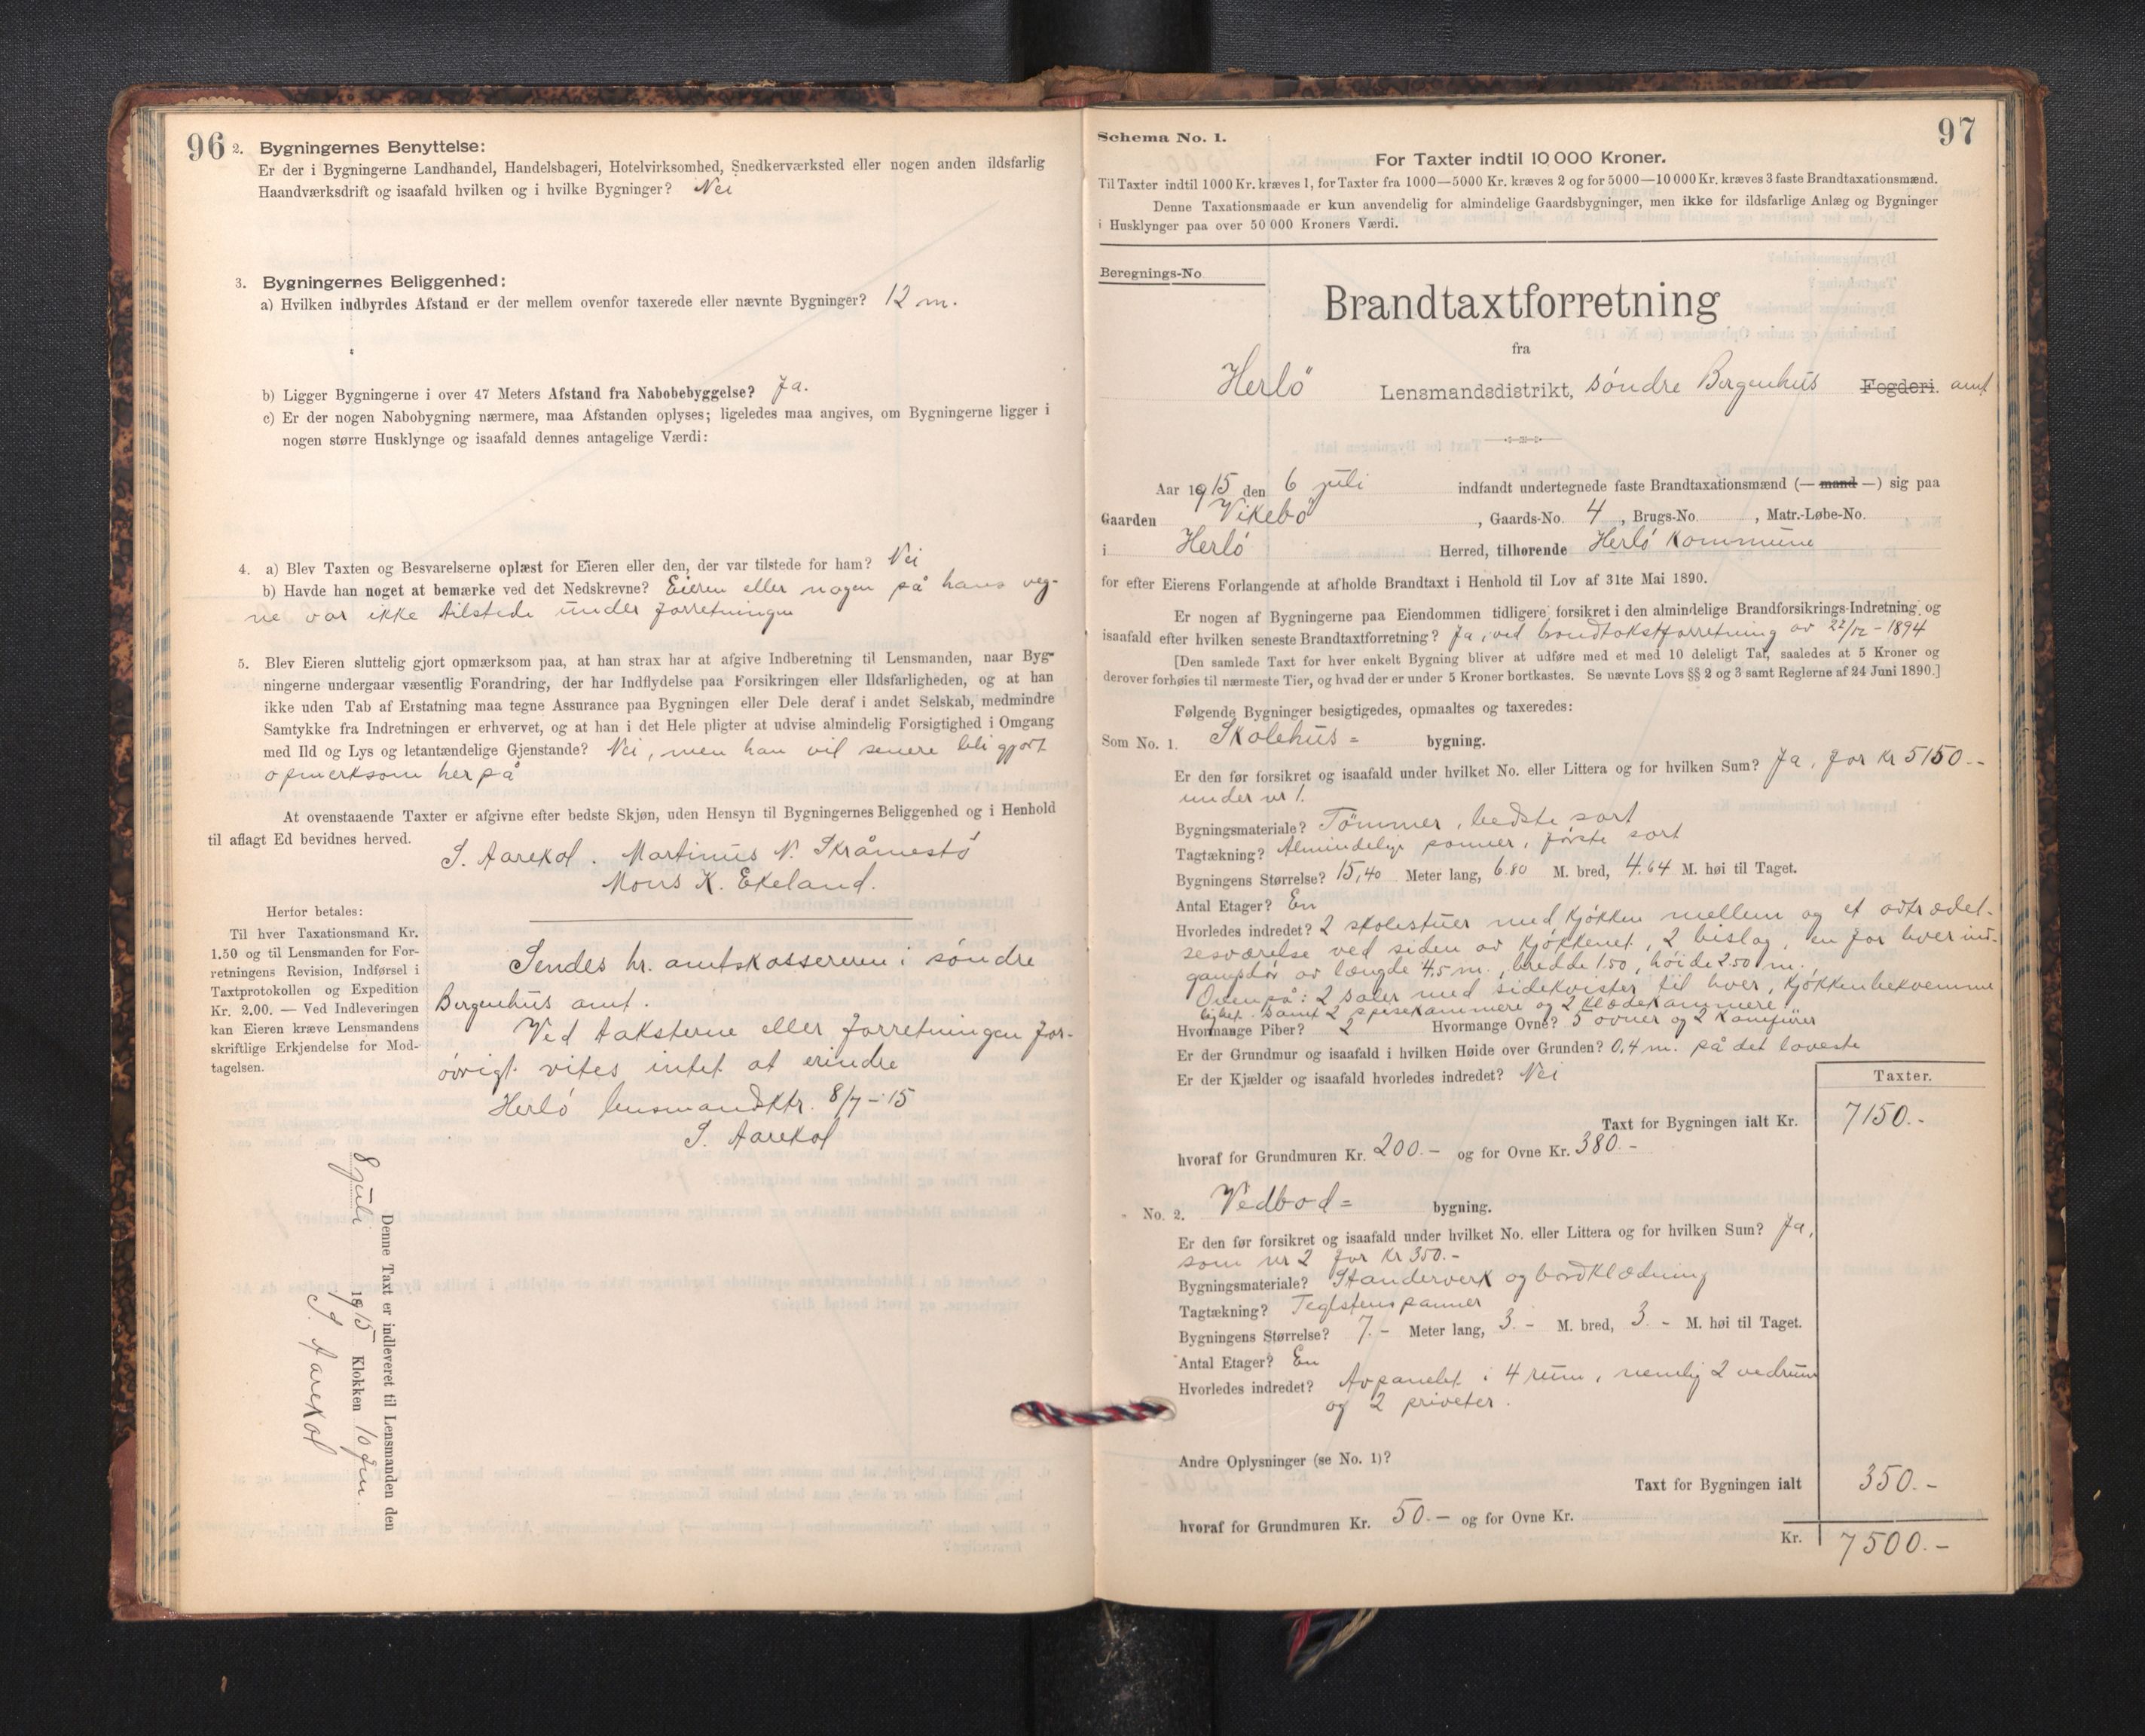 96
2. Bygningernes Benyttelse:
Er der i Bygningerne Landhandel, Handelsbageri, Hotelvirksomhed, Snedkerværksted eller nogen anden ildsfarlig
Haandværksdrift og isaafald hvilken og i hvilke Bygninger? Nei
3. Bygningernes Beliggenhed:
a) Hvilken indbyrdes Afstand er der mellem ovenfor taxerede eller nævnte Bygninger? 12 m.
b) Ligger Bygningerne i over 47 Meters Afstand fra Nabobebyggelse? Ja.
c) Er der nogen Nabobygning nærmere, maa Afstanden oplyses; ligeledes maa angives, om Bygningerne ligger i
nogen større Husklynge og isaafald dennes antagelige Værdi:
4. a) Blev Taxten og Besvarelserne oplæst for Eieren eller den, der var tilstede for ham? Nei
b) Havde han noget at bemærke ved det Nedskrevne? Eieren eller nogen på hans veg-
ne var ikke tilstede under forretningen
5. Blev Eieren sluttelig gjort opmærksom paa, at han strax har at afgive Indberetning til Lensmanden, naar Byg-
ningerne undergaar væsentlig Forandring, der har Indflydelse paa Forsikringen eller Ildsfarligheden, og at han
ikke uden Tab af Erstatning maa tegne Assurance paa Bygningen eller Dele deraf i andet Selskab, medmindre
Samtykke fra Indretningen er erhvervet, og at han i det Hele pligter at udvise almindelig Forsigtighed i Omgang
med Ild og Lys og letantændelige Gjenstande? Nei, men han vil senere bli gjort
opmerksom herpå
At ovenstaaende Taxter er afgivne efter bedste Skjøn, uden Hensyn til Bygningernes Beliggenhed og i Henhold
til aflagt Ed bevidnes herved.
S. Aarekol. Martinus N. Skråmestø
Mons K. Ekeland.
Herfor betales:
Til hver Taxationsmand Kr.
1.50 og til Lensmanden for For-
retningens Revision, Indførsel i
Taxtprotokollen og Expedition
Kr. 2.00. — Ved Indleveringen
kan Eieren kræve Lensmandens
skriftlige Erkjendelse for Mod-
tagelsen.
Sendes hr. amtskassereren i søndre
Bergenhus amt.
Ved taksterne eller forretningen for-
øvrigt vites intet at erindre
Herlø lensmandsktr. 8/7-15
S. Aarekol
Denne Taxt er indleveret til Lensmanden den
8 juli 1915 Klokken 10 fm.
S. Aarekol
97
Schema No. 1.
For Taxter indtil 10 000 Kroner.
Til Taxter indtil 1000 Kr. kræves 1, for Taxter fra 1000—5000 Kr. kræves 2 og for 5000—10 000 Kr. kræves 3 faste Brandtaxationsmænd.
Denne Taxationsmaade er kun anvendelig for almindelige Gaardsbygninger, men ikke for ildsfarlige Anlæg og Bygninger
i Husklynger paa over 50 000 Kroners Værdi.
Beregnings-No
Brandtaxtforretning
fra
Herlø Lensmandsdistrikt, søndre Bergenhus Fogderi. amt
Aar 1915 den 6 juli indfandt undertegnede faste Brandtaxationsmænd (— mand —) sig paa
Gaarden Vikebø, Gaards-No. 4, Brugs-No. , Matr.-Løbe-No.
i Herlø Herred, tilhørende Herlø Kommune
for efter Eierens Forlangende at afholde Brandtaxt i Henhold til Lov af 31te Mai 1890.
Er nogen af Bygningerne paa Eiendommen tidligere forsikret i den almindelige Brandforsikrings-Indretning og
isaafald efter hvilken seneste Brandtaxtforretning? Ja, ved brandtakstforretning av 22/12-1894
[Den samlede Taxt for hver enkelt Bygning bliver at udføre med et med 10 deleligt Tal, saaledes at 5 Kroner og
derover forhøies til nærmeste Tier, og hvad der er under 5 Kroner bortkastes. Se nævnte Lovs §§ 2 og 3 samt Reglerne af 24 Juni 1890.]
Følgende Bygninger besigtigedes, opmaaltes og taxeredes:
Som No. 1. Skolehus= bygning.
Er den før forsikret og isaafald under hvilket No. eller Littera og for hvilken Sum? Ja, for kr 5150.-
under nr 1.
Bygningsmateriale? Tømmer, bedste sort
Tagtækning? Almindelige panner, første sort
Bygningens Størrelse? 15,40 Meter lang, 6.80 M. bred, 4.64 M. høi til Taget.
Antal Etager? En
Hvorledes indredet? 2 skolestuer med kjøkken mellem og et avtrædel-
sesværelse ved siden av kjøkkenet, 2 bislag, en for hver ind-
gangsdør av længde 4.5 m., bredde 1.50, høide 2.50 m.
Ovenpå: 2 saler med sidekvister til hver, kjøkkenbekvemme
lighet samt 2 spisekammere og 2 klædekammere
Hvormange Piber? 2 Hvormange Ovne? 5 ovner og 2 komfurer
Er der Grundmur og isaafald i hvilken Høide over Grunden? 0.4 m. på det laveste
Er der Kjælder og isaafald hvorledes indredet? Nei
Taxter.
Taxt for Bygningen ialt Kr. 7150.-
hvoraf for Grundmuren Kr. 200.- og for Ovne Kr. 380.-
No. 2. Vedbod= bygning.
Er den før forsikret og isaafald under hvilket No. eller Littera og for hvilken Sum? Ja,
som nr 2 for kr 350.-
Bygningsmateriale? Standerverk og bordklædning
Tagtækning? Teglstenspanner
Bygningens Størrelse? 7.- Meter lang, 3.- M. bred, 3.- M. høi til Taget.
Antal Etager? En
Hvorledes indredet? Avpanelet i 4 rum, nemlig 2 vedrum
og 2 priveter.
Andre Oplysninger (se No. 1)?
Taxt for Bygningen ialt 350.-
hvoraf for Grundmuren Kr. 50.- og for Ovne Kr.
Kr. 7500.-